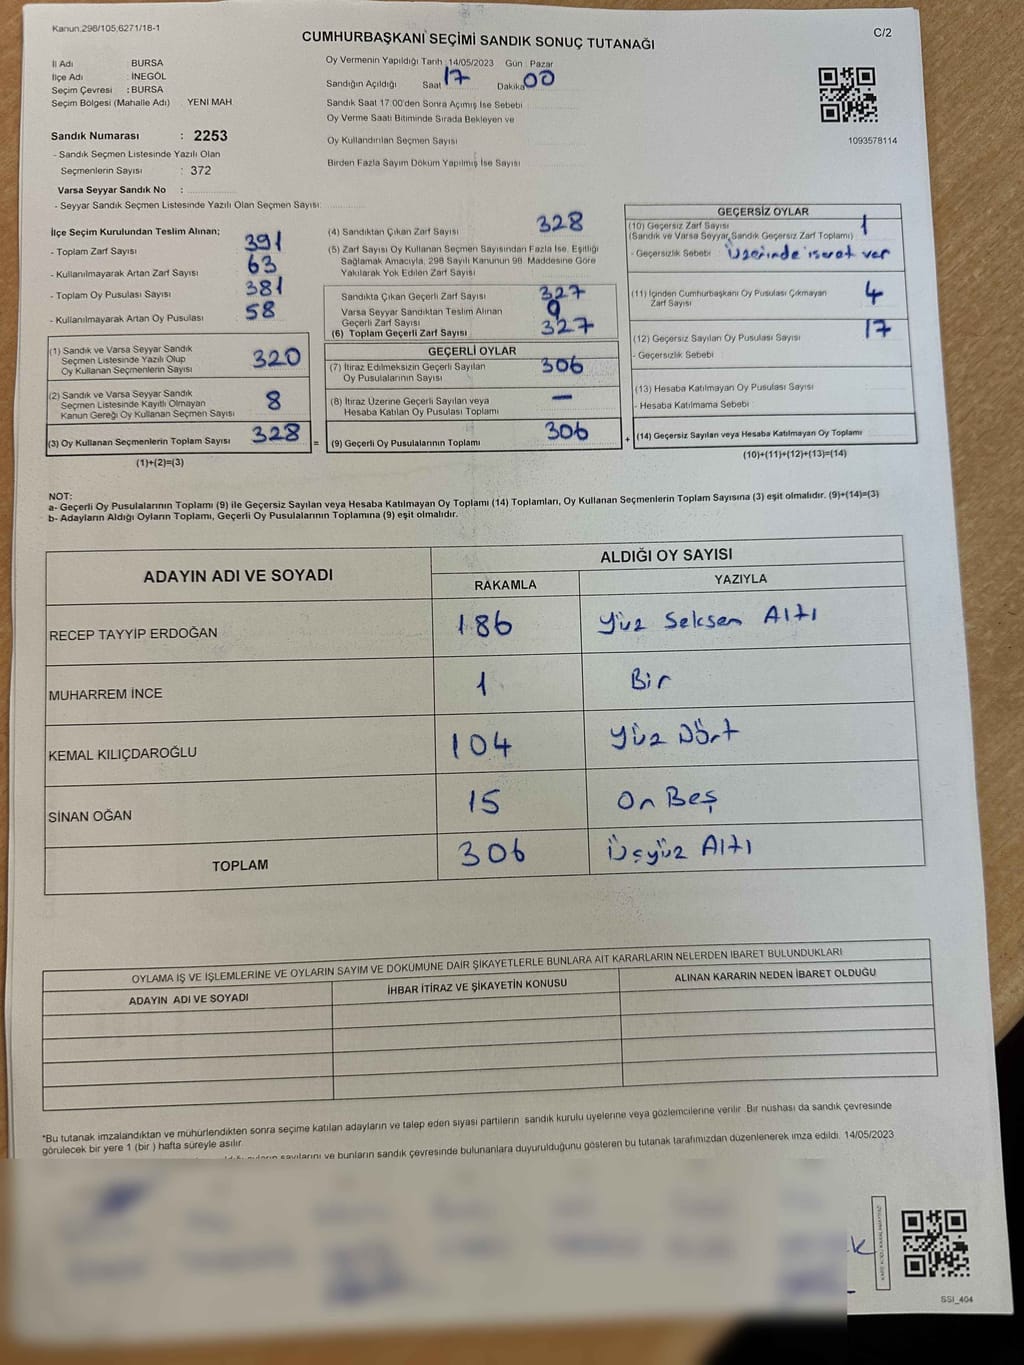 Kanun.298/105,6271/18-1
C/2
CUMHURBAŞKANI SEÇİMİ SANDIK SONUÇ TUTANAĞI
İl Adı BURSA
İlçe Adı : İNEGÖL
Seçim Çevresi : BURSA
Seçim Bölgesi (Mahalle Adı) YENİ MAH.
Sandık Numarası : 2253
- Sandık Seçmen Listesinde Yazılı Olan
Seçmenlerin Sayısı : 372
Varsa Seyyar Sandık No :
- Seyyar Sandık Seçmen Listesinde Yazılı Olan Seçmen Sayısı:
Oy Vermenin Yapıldığı Tarih :14/05/2023 Gün : Pazar
Sandığın Açıldığı Saat 17 Dakika 00
Sandık Saat 17:00'den Sonra Açımış İse Sebebi
Oy Verme Saati Bitiminde Sırada Bekleyen ve
Oy Kullandırılan Seçmen Sayısı
Birden Fazla Sayım Döküm Yapılmış İse Sayısı
1093578114
İlçe Seçim Kurulundan Teslim Alınan;
- Toplam Zarf Sayısı 391
- Kullanılmayarak Artan Zarf Sayısı 63
- Toplam Oy Pusulası Sayısı 381
- Kullanılmayarak Artan Oy Pusulası 58
(1) Sandık ve Varsa Seyyar Sandık
Seçmen Listesinde Yazılı Olup
Oy Kullanan Seçmenlerin Sayısı 320
(2) Sandık ve Varsa Seyyar Sandık
Seçmen Listesinde Kayıtlı Olmayan
Kanun Gereği Oy Kullanan Seçmen Sayısı 8
(3) Oy Kullanan Seçmenlerin Toplam Sayısı 328 =
(1)+(2)=(3)
(4) Sandıktan Çıkan Zarf Sayısı 328
(5) Zarf Sayısı Oy Kullanan Seçmen Sayısından Fazla İse, Eşitliği
Sağlamak Amacıyla, 298 Sayılı Kanunun 98. Maddesine Göre
Yakılarak Yok Edilen Zarf Sayısı
Sandıkta Çıkan Geçerli Zarf Sayısı 327
Varsa Seyyar Sandıktan Teslim Alınan
Geçerli Zarf Sayısı
(6) Toplam Geçerli Zarf Sayısı 327
GEÇERLİ OYLAR
(7) İtiraz Edilmeksizin Geçerli Sayılan
Oy Pusulalarının Sayısı 306
(8) İtiraz Üzerine Geçerli Sayılan veya
Hesaba Katılan Oy Pusulası Toplamı —
(9) Geçerli Oy Pusulalarının Toplamı 306 +
GEÇERSİZ OYLAR
(10) Geçersiz Zarf Sayısı 1
(Sandık ve Varsa Seyyar Sandık Geçersiz Zarf Toplamı)
- Geçersizlik Sebebi Üzerinde işaret var
(11) İçinden Cumhurbaşkanı Oy Pusulası Çıkmayan
Zarf Sayısı 4
(12) Geçersiz Sayılan Oy Pusulası Sayısı 17
- Geçersizlik Sebebi
(13) Hesaba Katılmayan Oy Pusulası Sayısı
- Hesaba Katılmama Sebebi
(14) Geçersiz Sayılan veya Hesaba Katılmayan Oy Toplamı
(10)+(11)+(12)+(13)=(14)
NOT:
a- Geçerli Oy Pusulalarının Toplamı (9) ile Geçersiz Sayılan veya Hesaba Katılmayan Oy Toplamı (14) Toplamları, Oy Kullanan Seçmenlerin Toplam Sayısına (3) eşit olmalıdır. (9)+(14)=(3)
b- Adayların Aldığı Oyların Toplamı, Geçerli Oy Pusulalarının Toplamına (9) eşit olmalıdır.
ADAYIN ADI VE SOYADI
ALDIĞI OY SAYISI
RAKAMLA YAZIYLA
RECEP TAYYİP ERDOĞAN 186 Yüz Seksen Altı
MUHARREM İNCE 1 Bir
KEMAL KILIÇDAROĞLU 104 Yüz Dört
SİNAN OĞAN 15 On Beş
TOPLAM 306 Üçyüz Altı
OYLAMA İŞ VE İŞLEMLERİNE VE OYLARIN SAYIM VE DÖKÜMÜNE DAİR ŞİKAYETLERLE BUNLARA AİT KARARLARIN NELERDEN İBARET BULUNDUKLARI
ADAYIN ADI VE SOYADI
İHBAR İTİRAZ VE ŞİKAYETİN KONUSU
ALINAN KARARIN NEDEN İBARET OLDUĞU
*Bu tutanak imzalandıktan ve mühürlendikten sonra seçime katılan adayların ve talep eden siyasi partilerin sandık kurulu üyelerine veya gözlemcilerine verilir. Bir nushası da sandık çevresinde
görülecek bir yere 1 (bir ) hafta süreyle asılır.
sayılarını ve bunların sandık çevresinde bulunanlara duyurulduğunu gösteren bu tutanak tarafımızdan düzenlenerek imza edildi. 14/05/2023
SSI_404